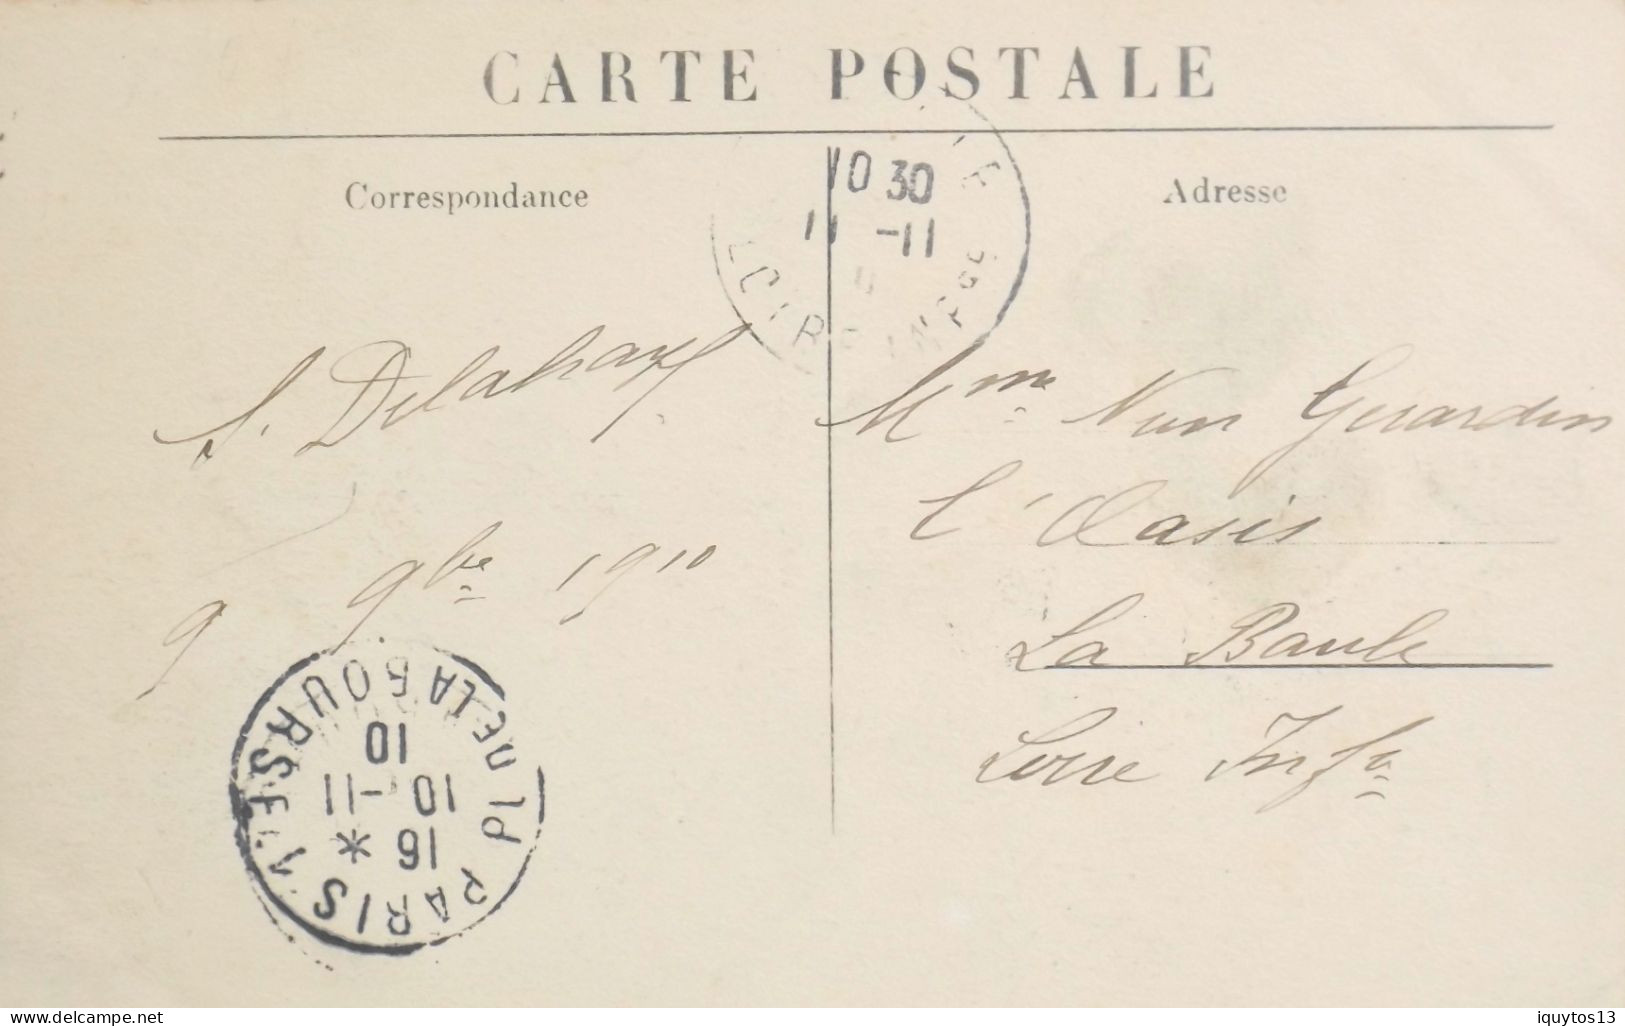 CARTE POSTALE
Correspondance
Adresse
10 30
11 -11
LOIRE INFRE
S. Delahaye
9 9bre 1910
Mme Nun Gerardin
l'Oasis
La Baule
Loire Infre
PARIS 1 PL DE LA BOURSE
16 *
10 -11
10
delcampe.net
iquytos13